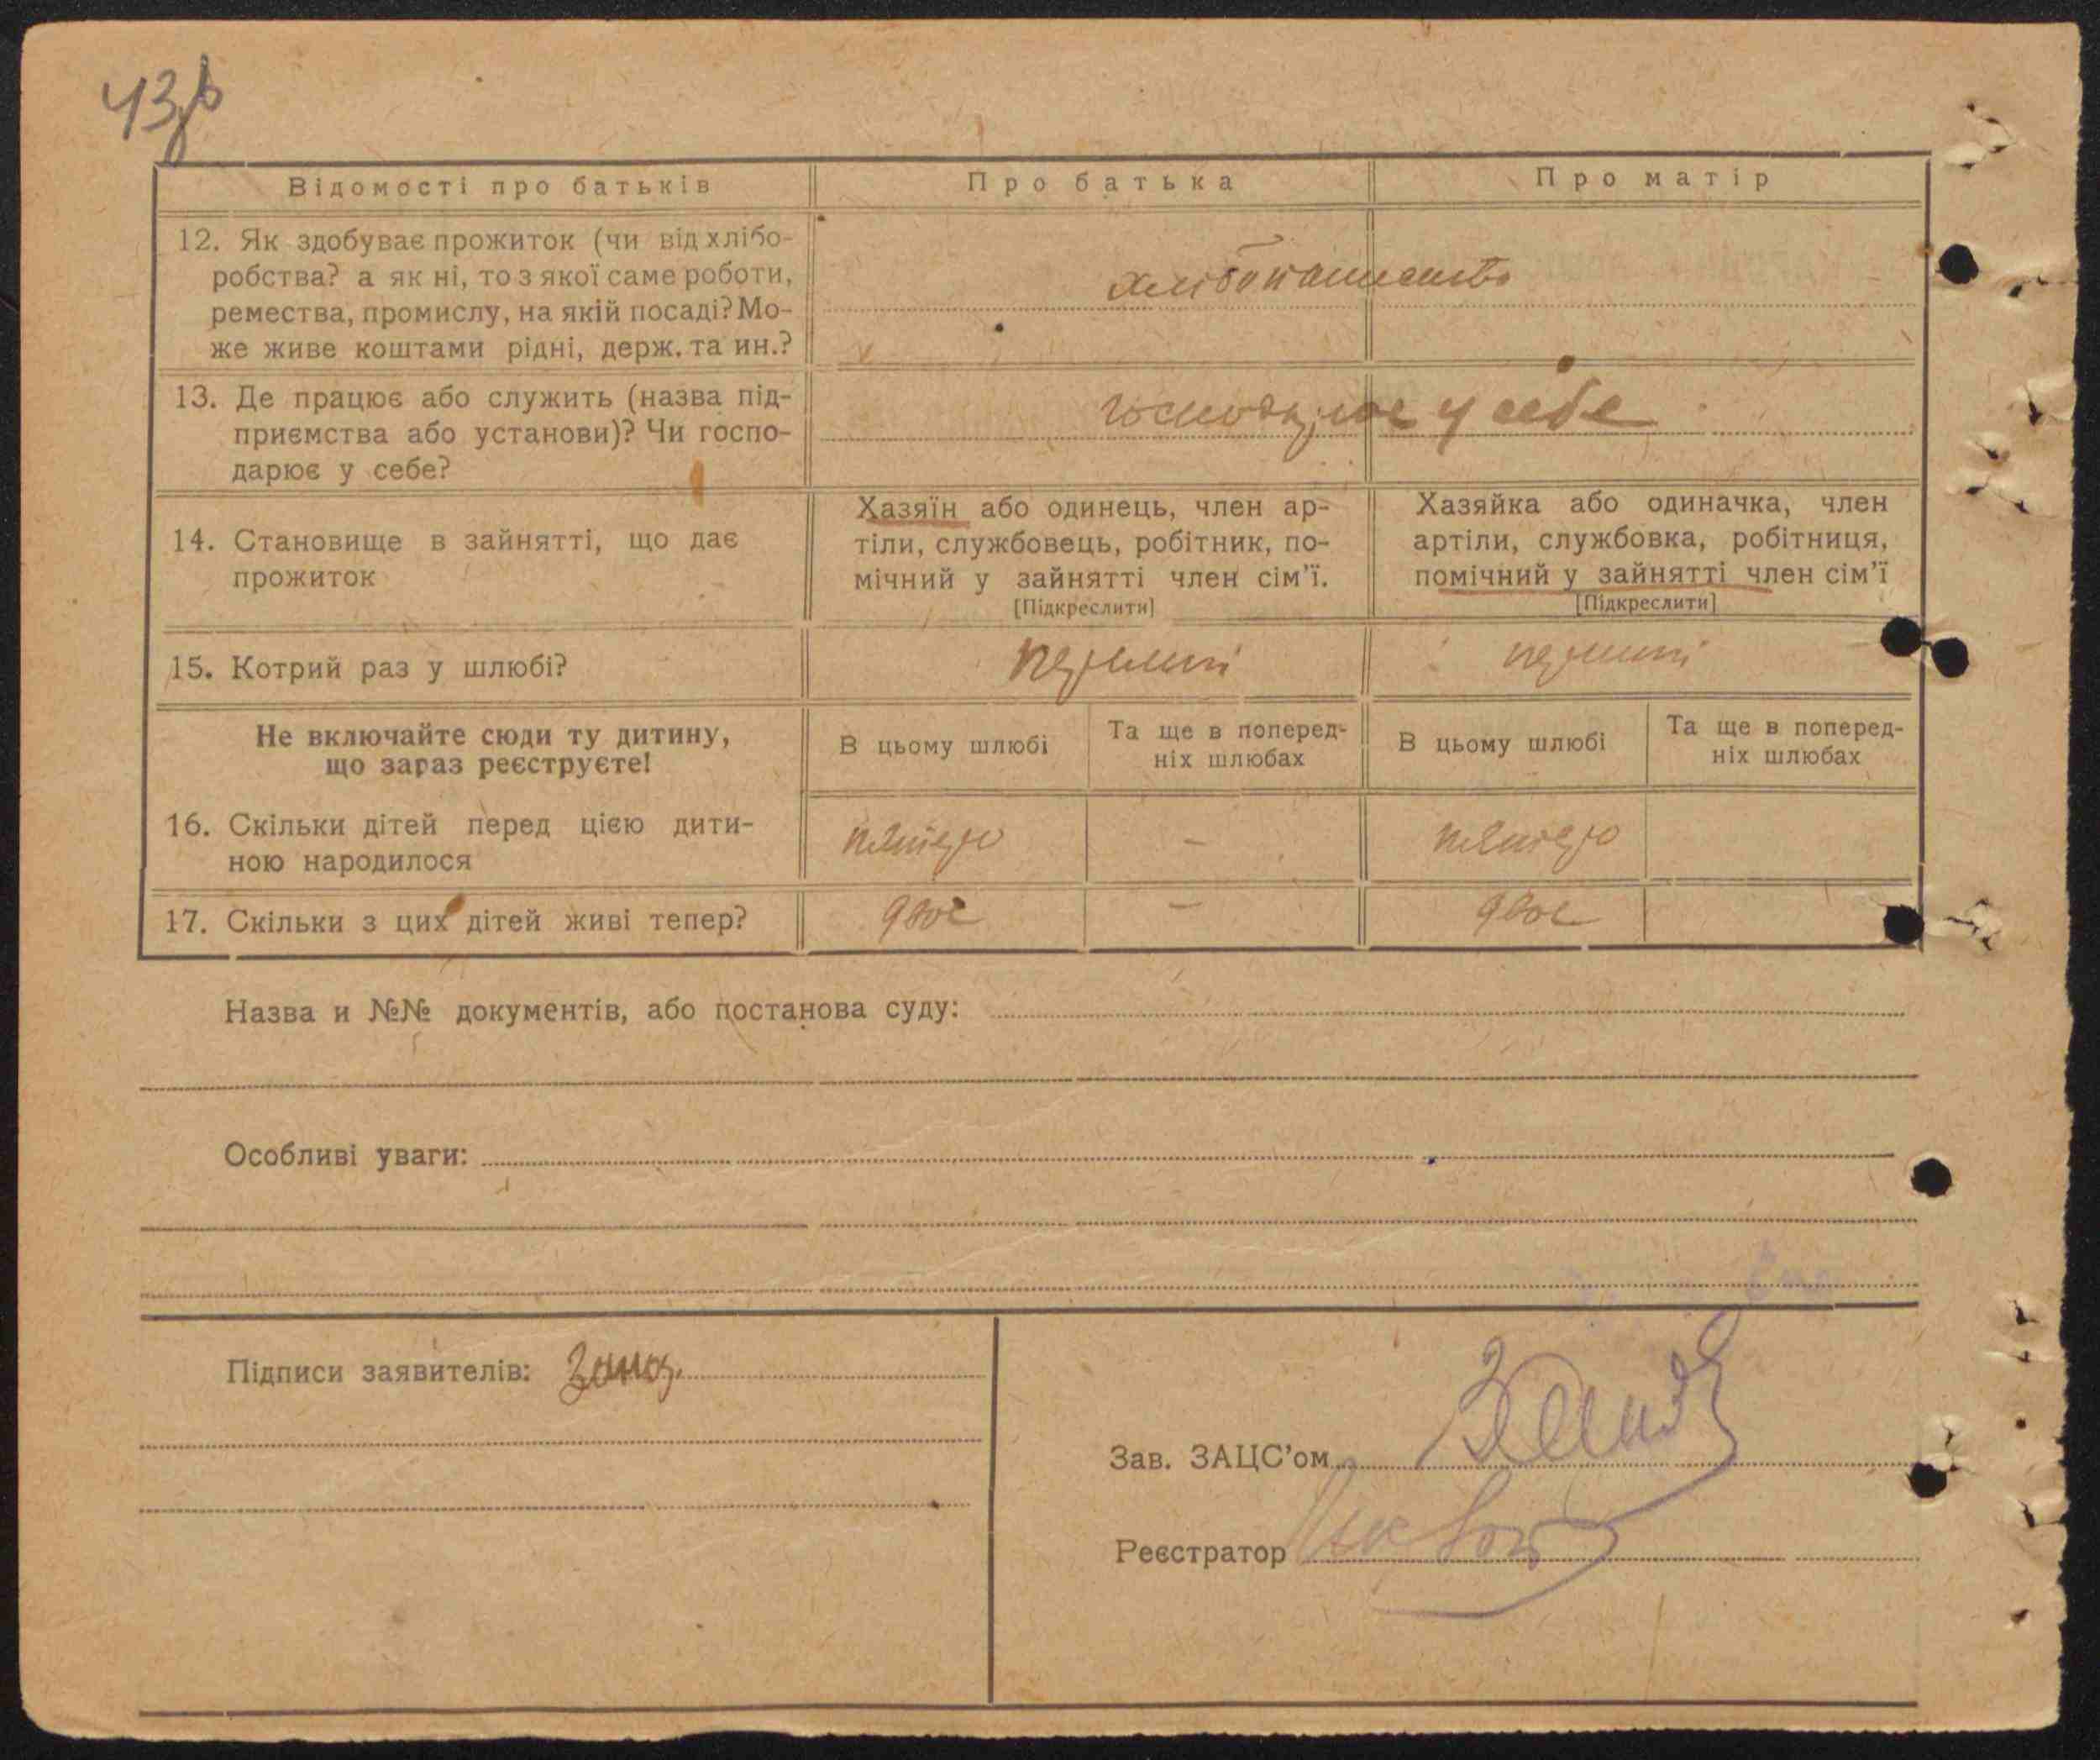 43
Відомості про батьків
Про батька
Про матір
12. Як здобуває прожиток (чи від хлібо-
робства? а як ні, то з якої саме роботи,
ремества, промислу, на якій посаді? Мо-
же живе коштами рідні, держ. та ин.?
хлібопашество
13. Де працює або служить (назва під-
приємства або установи)? Чи госпо-
дарює у себе?
господарює у себе
14. Становище в зайнятті, що дає
прожиток
Хазяїн або одинець, член ар-
тіли, службовець, робітник, по-
мічний у зайнятті член сім'ї.
[Підкреслити]
Хазяйка або одиначка, член
артіли, службовка, робітниця,
помічний у зайнятті член сім'ї
[Підкреслити]
15. Котрий раз у шлюбі?
перший
перший
Не включайте сюди ту дитину,
що зараз реєструєте!
В цьому шлюбі
Та ще в поперед-
ніх шлюбах
В цьому шлюбі
Та ще в поперед-
ніх шлюбах
16. Скільки дітей перед цією дити-
ною народилося
пятеро
-
пятеро
17. Скільки з цих дітей живі тепер?
двоє
-
двоє
Назва и №№ документів, або постанова суду:
Особливі уваги:
Підписи заявителів:
Зав. ЗАЦС'ом
Реєстратор